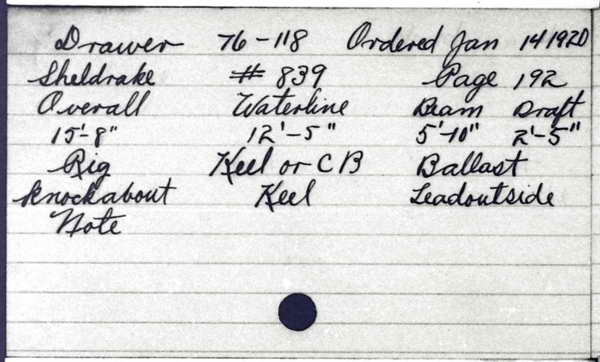 Drawer 76-118 Ordered Jan 14 1920
Sheldrake # 839 Page 192
Overall Waterline Beam Draft
15'-8" 12'-5" 5'-10" 2'-5"
Rig Keel or CB Ballast
Knockabout Keel Lead outside
Note